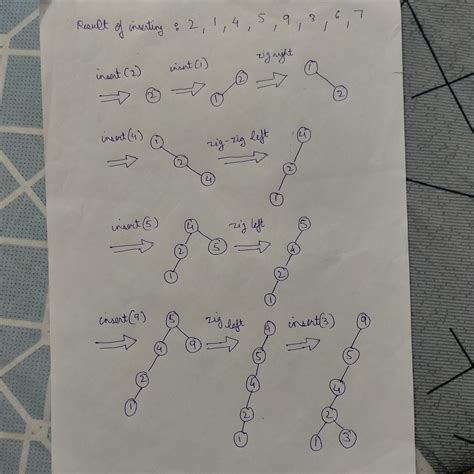 Result of inserting : 2, 1, 4, 5, 9, 3, 6, 7
insert(2) insert(1) zig right
2 2 1 1 2
insert(4) zig-zig left
1 2 4 4 2 1
insert(5) zig left
4 2 5 1 5 4 2 1
insert(9) zig left insert(3)
5 4 9 2 1 9 5 4 2 1 9 5 4 2 1 3